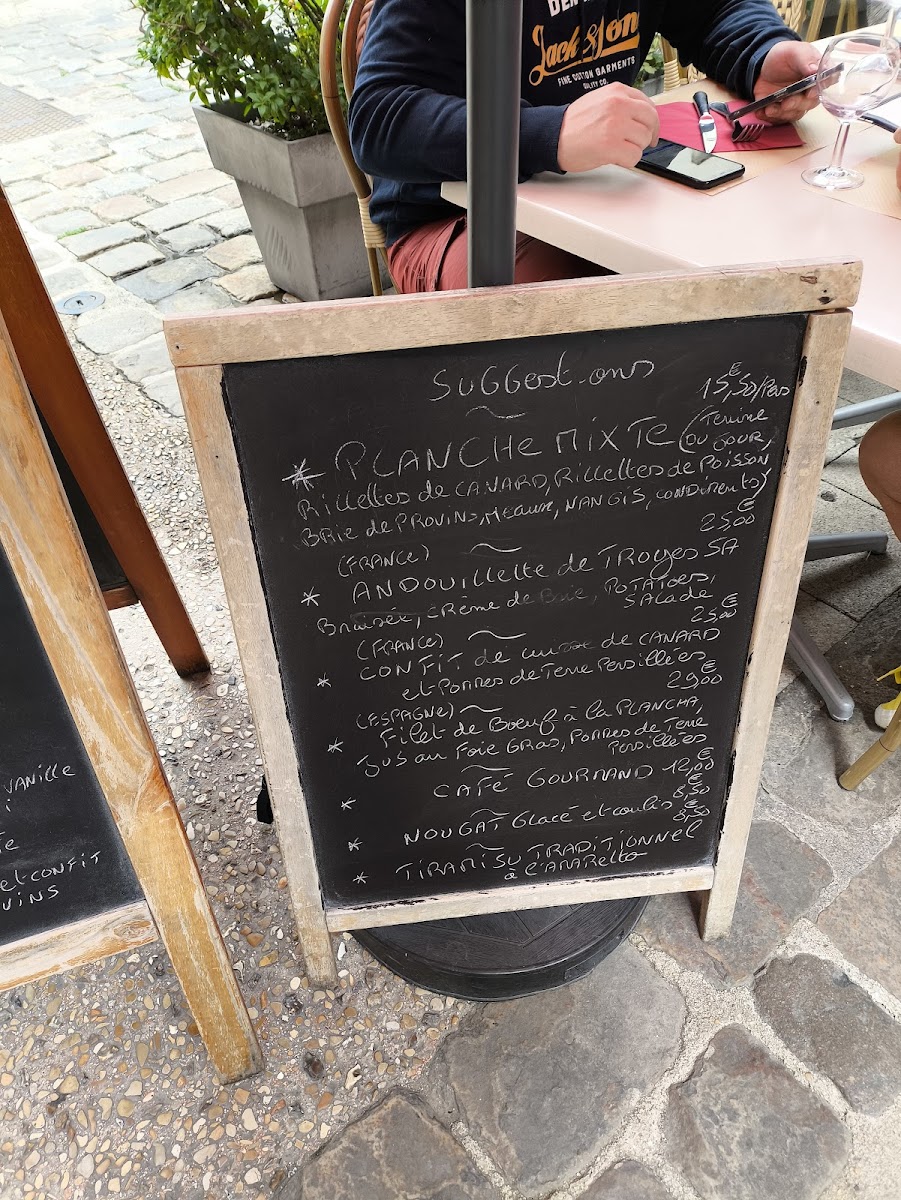 DEN
Jack & Jon
FINE COTTON GARMENTS
QUALITY CO.
SUGGestions
15,50€/Pers
* PLANCHE MIXTE (Terrine
DU JOUR,
Rillettes de CANARD, Rillettes de Poisson,
BRie de PROVINS, Meaux, NANGIS, condiments)
25,00€
(FRANCE)
* ANDOUILLETTE de TROYES 5A
Braisée, CRème de Brie, POTATOES,
SALADE
25,00€
(FRANCE)
* CONFIT de cuisse de CANARD
et Pommes de Terre Persillées
29,00€
(ESPAGNE)
* Filet de Boeuf à la PLANCHA,
JUS au Foie GRAS, Pommes de Terre
Persillées
* CAFÉ GOURMAND 12,00€
* NOUGAT Glacé et coulis 8,50€
8,50€
* TIRAMISU TRADITIONNEL
à l'AMARETTO
VANILLE
et CONFIT